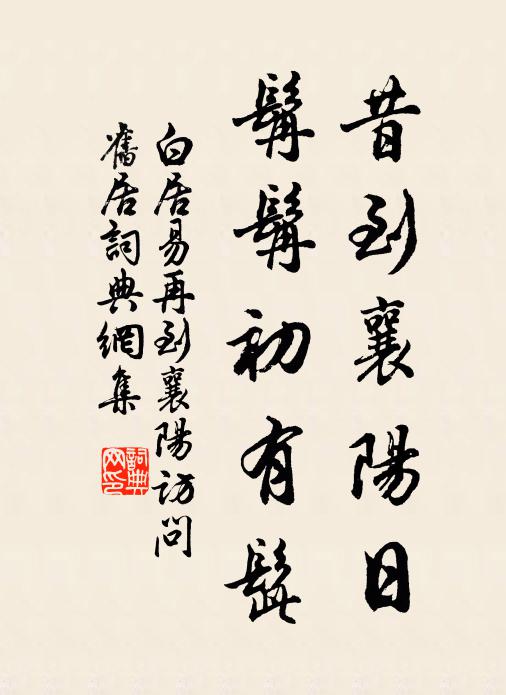 昔到襄陽日
髯髯初有髭
白居易再到襄陽訪問
舊居詞典網集
詞典网印